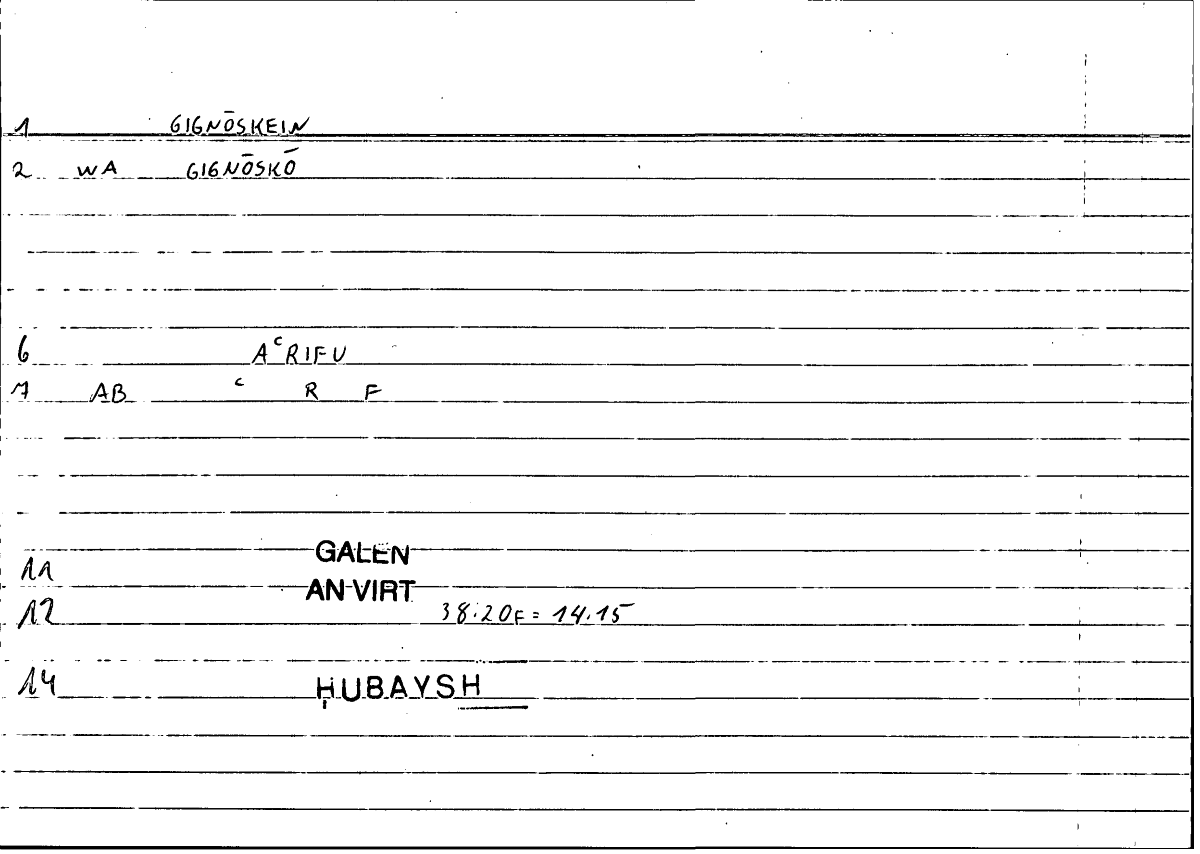 1 GIGNŌSKEIN
2 WA GIGNŌSKŌ
6 AᶜRIFU
7 AB ᶜ R F
11 GALEN
AN VIRT
12 38.20F = 14.15
14 ḤUBAYSH